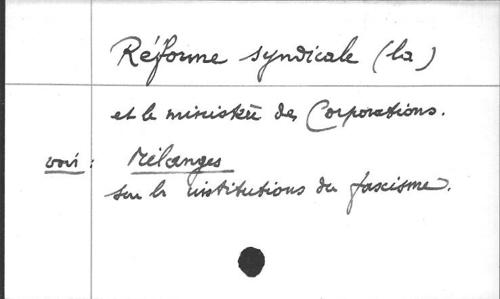 Réforme syndicale (la)
et le ministère des Corporations.
voir : Mélanges
sur les institutions du fascisme.